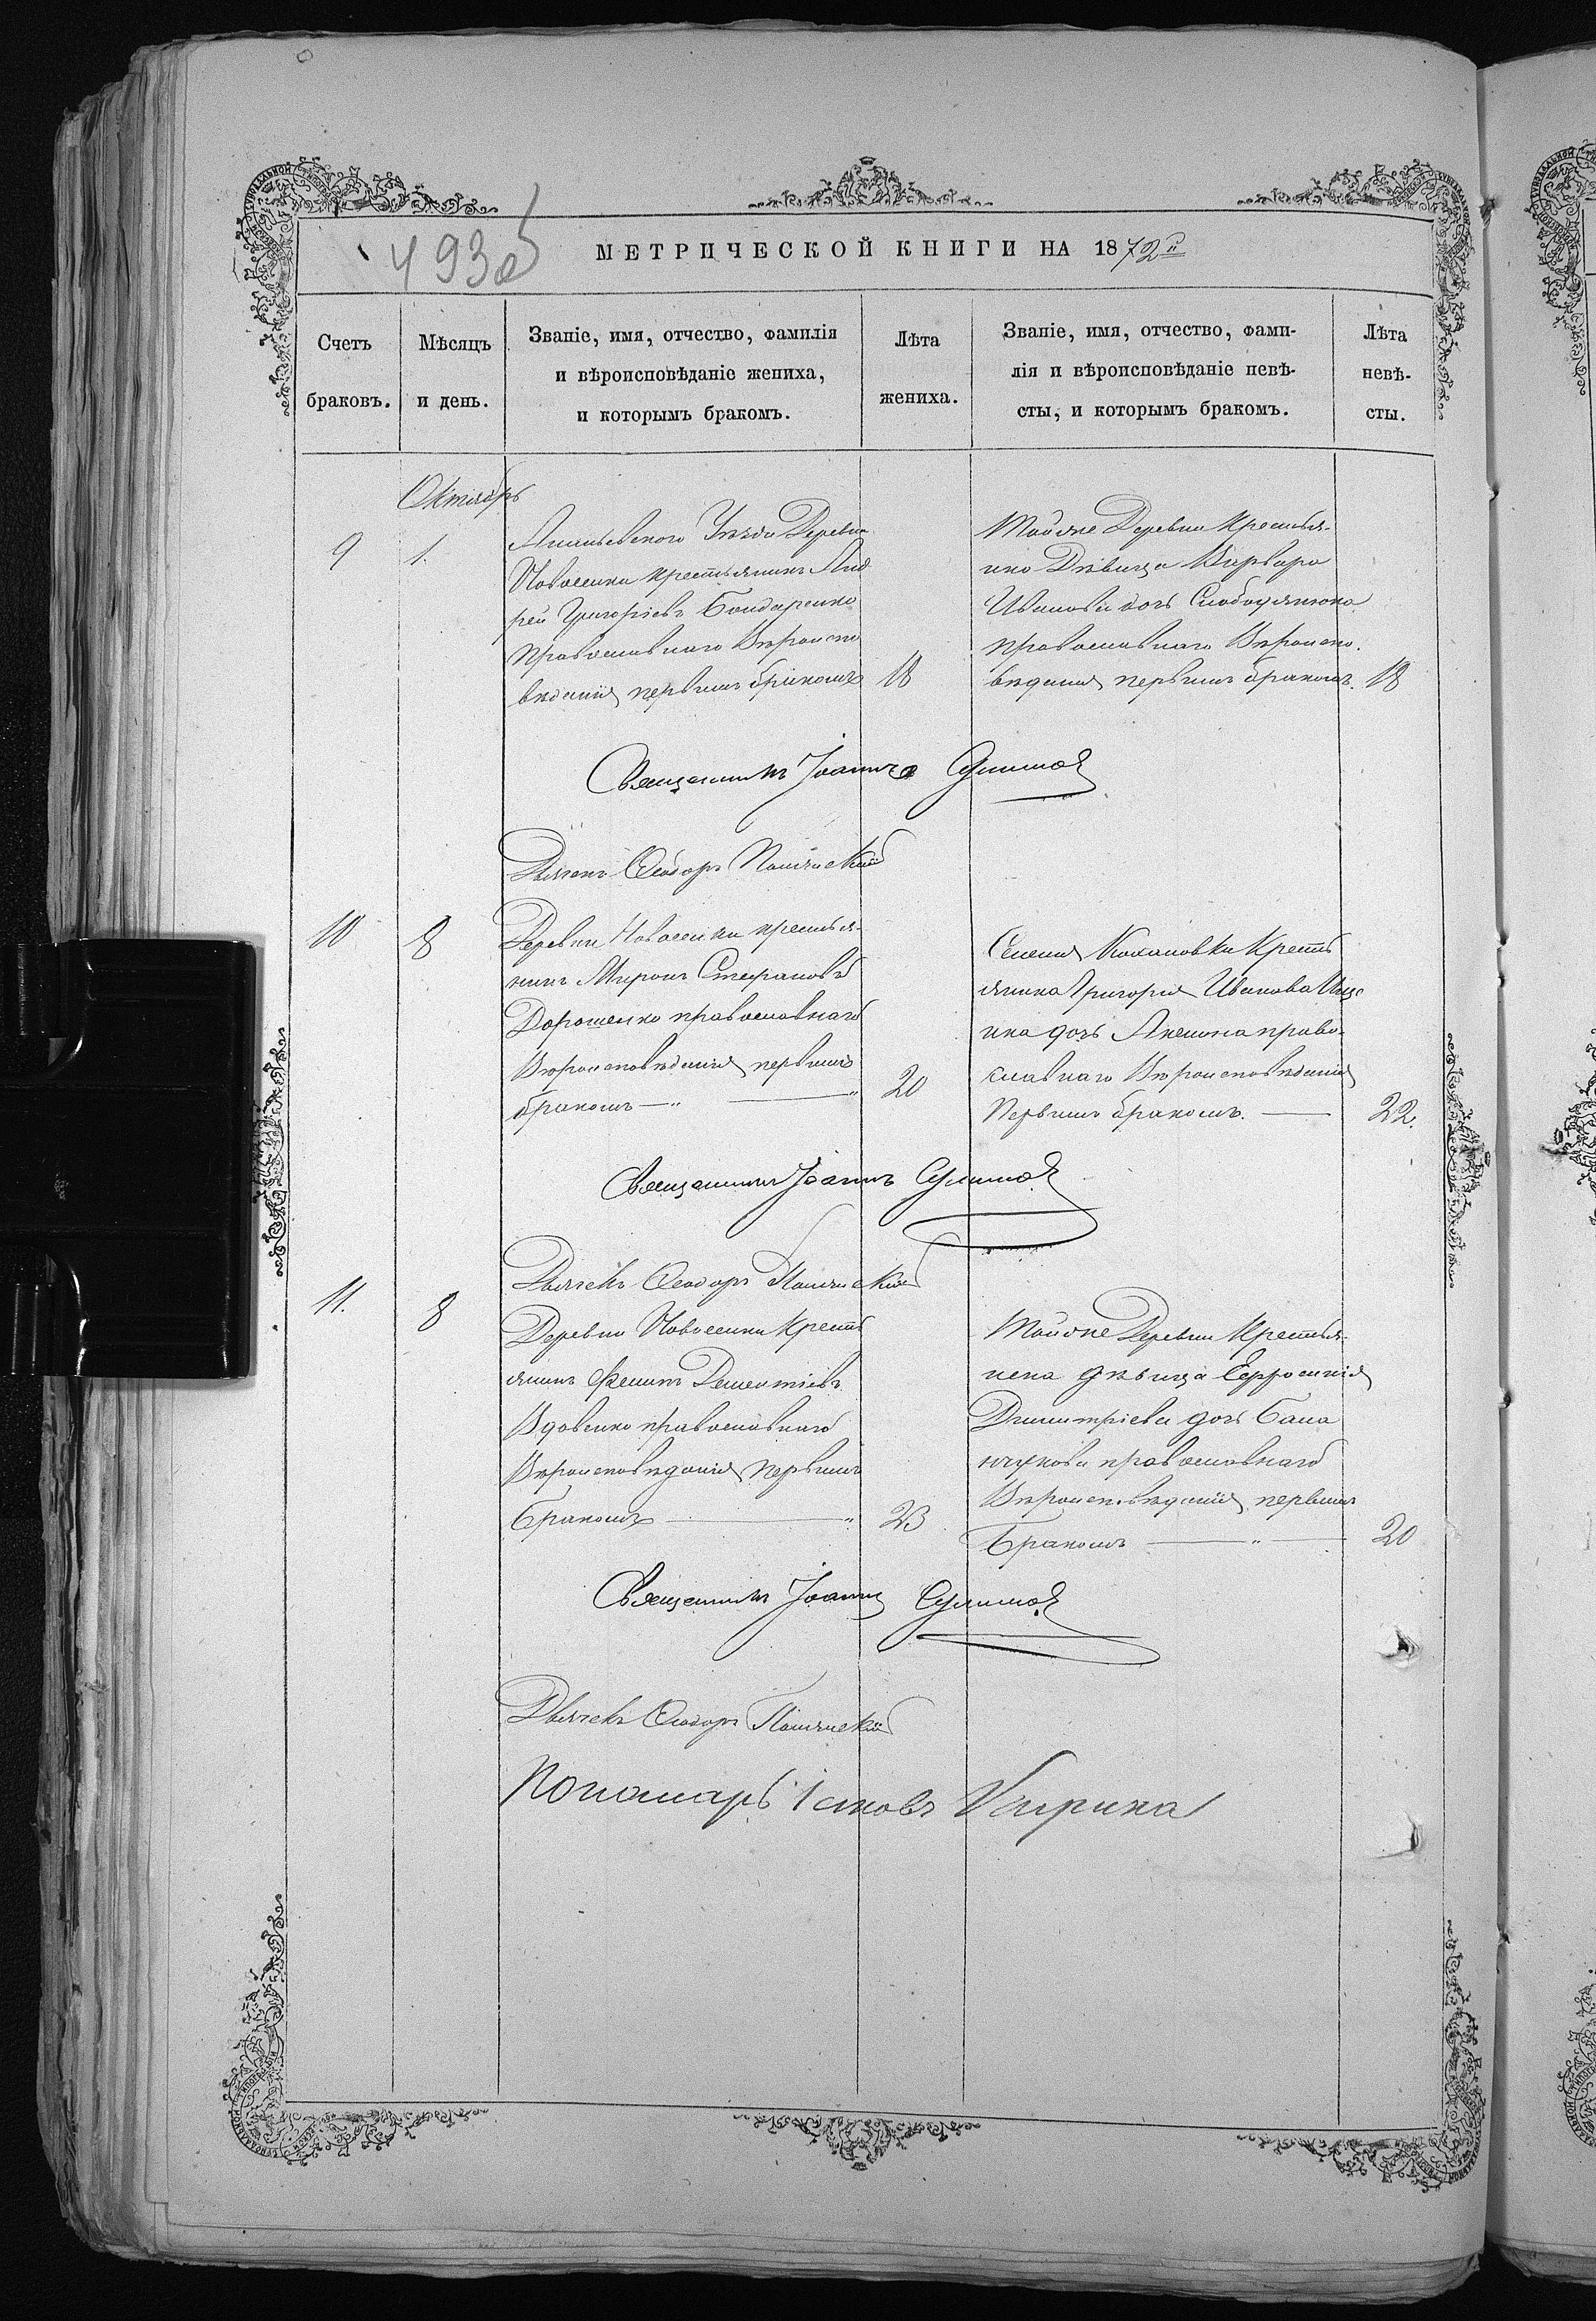 493об
МЕТРИЧЕСКОЙ КНИГИ НА 1872й
Счетъ браковъ.
Мѣсяцъ и день.
Званіе, имя, отчество, фамилія
и вѣроисповѣданіе жениха,
и которымъ бракомъ.
Лѣта жениха.
Званіе, имя, отчество, фами-
лія и вѣроисповѣданіе невѣ-
сты, и которымъ бракомъ.
Лѣта невѣ-
сты.
Октябрь
9
1.
Ананьевского Уѣзда Деревни
Новоселки крестьянинъ Анд
рей Григоріевъ Бондаренко
Православнаго Вѣроиспо
вѣданія первымъ бракомъ
18
Тойже Деревни Крестья-
нка Дѣвица Варвара
Иванова дочь Слободянюка
православнаго Вѣроиспо-
вѣданія первымъ бракомъ.
18
Священникъ Іоаннъ
Дьячекъ Ѳеодоръ
10
8
Деревни Новоселки крестья-
нинъ Миронъ Стефановъ
Дорошенко православнаго
Вѣроисповѣданія первымъ
бракомъ
20
Селенія Кохановки Кресть
янина Григорія Иванова
дочь православнаго Вѣроисповѣданія
Первымъ бракомъ.
22.
Священникъ Іоаннъ
Дьячекъ Ѳеодоръ
11.
8
Деревни Новоселки Кресть
янинъ Дементіевъ
Вдовенко православнаго
Вѣроисповѣданія Первымъ
Бракомъ
23
Тойже Деревни Крестья-
нка дѣвица Ефросинія
Димитріева дочь
православнаго
Вѣроисповѣданія первымъ
Бракомъ
20
Священникъ Іоаннъ
Дьячекъ Ѳеодоръ
Пономарь Іаковъ